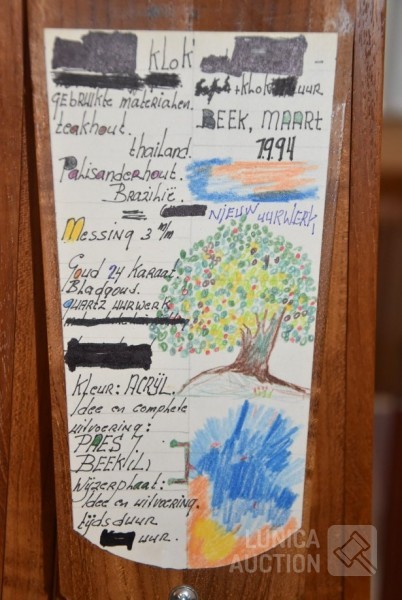 klok
gebruikte materialen.
teakhout.
thailand.
Palisanderhout.
Brazilië.
Messing 3 m/m
Goud 24 karaat
Bladgous.
quartz uurwerk
Kleur: Acrijl.
Idee en complete
uitvoering:
PAES
BEEK(L)
Wijzerplaat:
Idee en uitvoering.
tijdsduur
uur.
+ klok uur
BEEK, MAART
1994
NIEUW UURWERK,
LUNICA
AUCTION